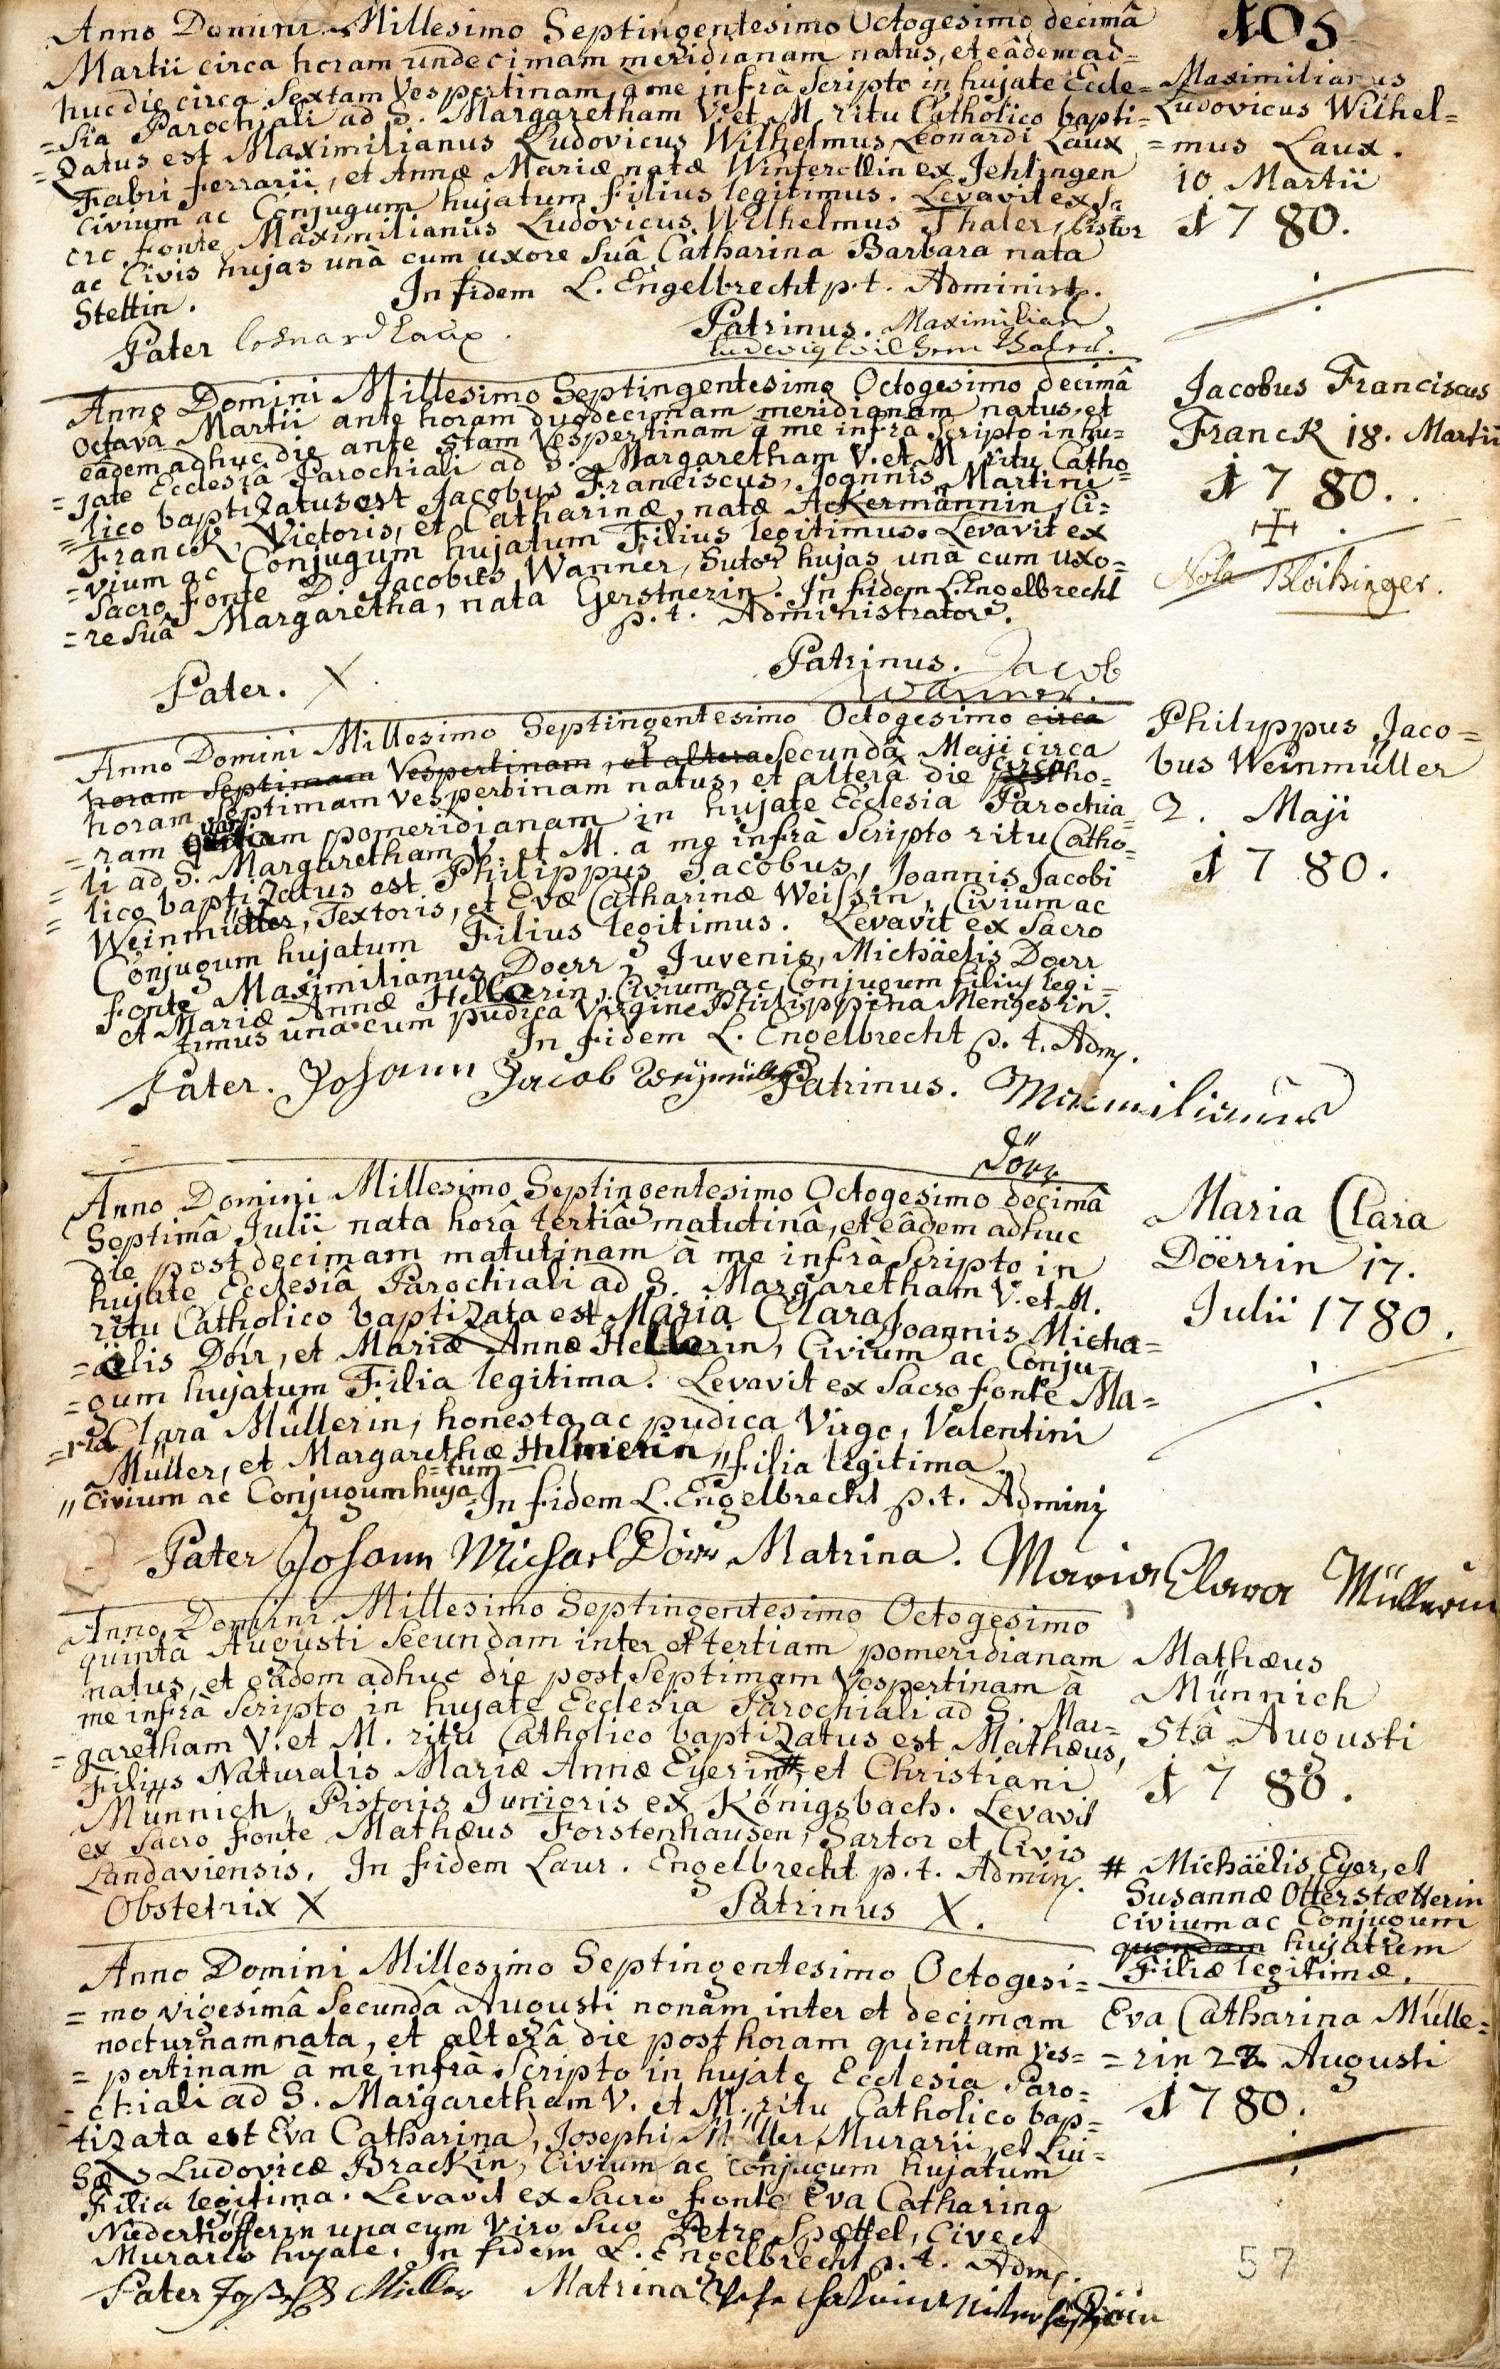 105
Anno Domini Millesimo Septingentesimo Octogesimo decimâ
Martii circa horam undecimam meridianam natus, et eâdem ad=
huc die circa Sextam Vespertinam, a me infrà Scripto in hujate Eccle=
=sia Parochiali ad S. Margaretham V. et M. ritu Catholico bapti=
=zatus est Maximilianus Ludovicus Wilhelmus, Leonardi Laux
Fabri ferrarii, et Annæ Mariæ natæ ex Jehlingen
Civium ac Conjugum hujatum filius legitimus. Levavit ex Sa
cro fonte Maximilianus Ludovicus Wilhelmus Thaler, Pistor
ac Civis hujas unà cum uxore Suâ Catharina Barbara nata
Stettin. In fidem L. Engelbrecht p.t. Administ.
Pater Leonard Laux. Patrinus. Maximilian
Ludewig Wilhem Thaler.
Maximilianus
Ludovicus Wilhel=
=mus Laux.
10 Martii
1780.
Anno Domini Millesimo Septingentesimo Octogesimo decimâ
Octavâ Martii ante horam duodecimam meridianam natus, et
eâdem adhuc die ante 5tam Vespertinam à me infrà Scripto in hu=
=jate Ecclesiâ Parochiali ad S. Margaretham V. et M. ritu Catho=
=lico baptizatus est Jacobus Franciscus, Joannis Martini
Franck, Victoris, et Catharinæ, natæ Ackermännin, Ci=
=vium ac Conjugum hujatum Filius legitimus. Levavit ex
Sacro fonte D. Jacobus Wanner, Sutor hujas unà cum uxo=
=re Suâ Margaretha, nata Gerstnerin. In fidem L. Engelbrecht
p.t. Administrator.
Pater. X Patrinus. Jacob
Wanner.
Jacobus Franciscus
Franck 18. Martii
1780.
Anno Domini Millesimo Septingentesimo Octogesimo circa
horam Septimam Vespertinam, et altera Secundâ Maji circa
horam Septimam Vespertinam natus, et alterâ die circa post ho=
=ram pomeridianam in hujate Ecclesia Parochia=
=li ad S. Margaretham V. et M. à me infrà Scripto ritu Catho=
=lico baptizatus est Philippus Jacobus, Joannis Jacobi
Weinmüller, Textoris, et Evæ Catharinæ Weissin, Civium ac
Conjugum hujatum Filius legitimus. Levavit ex Sacro
fonte Maximilianus Doerr, Juvenis, Michäelis Doerr
et Mariæ Annæ Hellerin, Civium ac Conjugum filius legi=
timus una cum pudica Virgine Philippina Mengesin.
In fidem L. Engelbrecht p.t. Adm.
Pater. Johann Jacob Patrinus. Maximilianus
Dörr
Philippus Jaco=
bus Weinmüller
2. Maji
1780.
Anno Domini Millesimo Septingentesimo Octogesimo decimâ
Septimâ Julii nata horâ tertiâ matutinâ, et eâdem adhuc
die post decimam matutinam à me infrà Scripto in
hujate Ecclesiâ Parochiali ad S. Margaretham V. et M.
ritu Catholico baptizata est Maria Clara, Joannis Micha=
=älis Dörr, et Mariæ Annæ Hellerin, Civium ac Conju=
=gum hujatum Filia legitima. Levavit ex Sacro fonte Ma=
=ria Clara Müllerin, honesta ac pudica Virgo, Valentini
Müller, et Margarethæ Filia legitima.
" Civium ac Conjugum huja=tum In fidem L. Engelbrecht p.t. Admini
Pater Johann Michael Dörr Matrina. Maria Clara Müllerin
Maria Clara
Döerrin 17.
Julii 1780.
Anno Domini Millesimo Septingentesimo Octogesimo
quinta Augusti Secundam inter et tertiam pomeridianam
natus, et eâdem adhuc die post Septimam Vespertinam à
me infrà Scripto in hujate Ecclesia Parochiali ad S. Mar=
=garetham V. et M. ritu Catholico baptizatus est Mathæus,
Filius Naturalis Mariæ Annæ Eyerin #, et Christiani
Münnich, Pistoris Junioris ex Königsbach. Levavit
ex Sacro fonte Mathæus Forstenhausen, Sartor et Civis
Landaviensis. In fidem Laur. Engelbrecht p.t. Admin.
Obstetrix X Patrinus X.
Mathæus
Münnich
5tâ Augusti
1780.
# Michäelis Eyer, et
Susannæ Otterstætterin
Civium ac Conjugum
quondam hujatrem
Filiæ legitimæ.
Anno Domini Millesimo Septingentesimo Octogesi=
=mo vigesimâ Secundâ Augusti nonam inter et decimam
nocturnam nata, et alterâ die post horam quintam ves=
=pertinam à me infrà Scripto in hujate Ecclesia Paro=
=chiali ad S. Margaretham V. et M. ritu Catholico bap=
tizata est Eva Catharina, Josephi Müller Murarii, et Lui=
Ludovicæ Brackin, Civium ac Conjugum hujatum
Filia legitima. Levavit ex Sacro fonte Eva Catharina
Niederhöfferin una cum Viro Suo Petro Spættel, Cive et
Murario hujate. In fidem L. Engelbrecht p.t. Adm.
Pater Joseph Müller Matrina
Eva Catharina Mülle=
=rin 22 Augusti
1780.
57